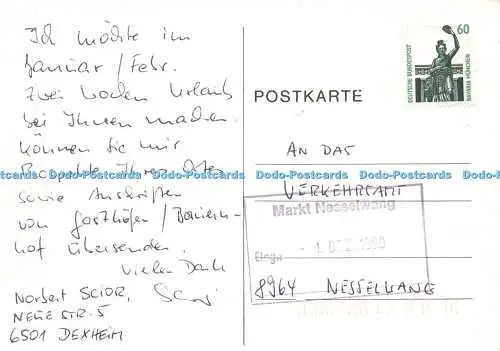 Ich möchte im
Januar / Febr.
zwei Wochen Urlaub
bei Ihnen machen.
Können Sie mir
Prospekte Ihres Ortes
sowie Anschriften
von Gasthöfen / Bauern-
hof übersenden.
Vielen Dank
Norbert SCIOR,
NEUE STR. 5
6501 DEXHEIM
POSTKARTE
60
DEUTSCHE BUNDESPOST
BAVARIA MÜNCHEN
AN DAS
VERKEHRSAMT
Markt Nesselwang
Eing.
- 1. DEZ. 1990
8964 NESSELWANG
Dodo-Postcards Dodo-Postcards Dodo-Postcards Dodo-Postcards Dodo-Postcards Dodo-Postcards